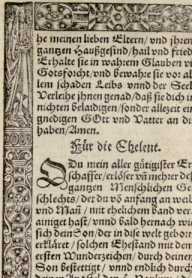 he meinen lieben Eltern/ vnd jhrem
gantzen Haußgesind/ hail vnd fried
Erhalte sie in wahrem Glauben vn
Gotsforcht/ vnd bewahre sie vor al
lem schaden Leibs vnnd der Seel
Verleihe jhnen genad/ daß sie dich in
nichten belaidigen/ sonder allezeit ein
gnedigen GOtt vnd Vatter an di
haben/ Amen.
Für die Ehelent.
DU mein aller gütigster Er
schaffer/ erlöser vñ mehrer deß
gantzen Menschlichen G
schlechts/ der du vö anfang an weib
vnd Mañ/ mit ehelichem band ver
ainiget hast/ vnnd bald hernach wie
sich dein Son/ der in dise welt gebore
erkläret/ solchen Ehestand mit dem
ersten Wunderzeichen/ durch deinen
Son bestettigt/ vnnd endlich den